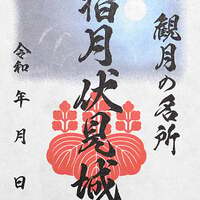 観月の名所
指月伏見城
令和 年 月 日